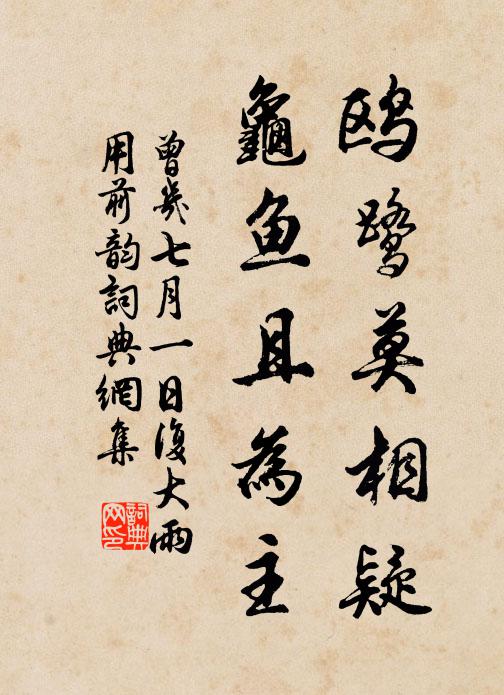 鸥鹭莫相疑
龜鱼且為主
曾幾七月一日復大雨
用前韵詞典網集
詞典网印